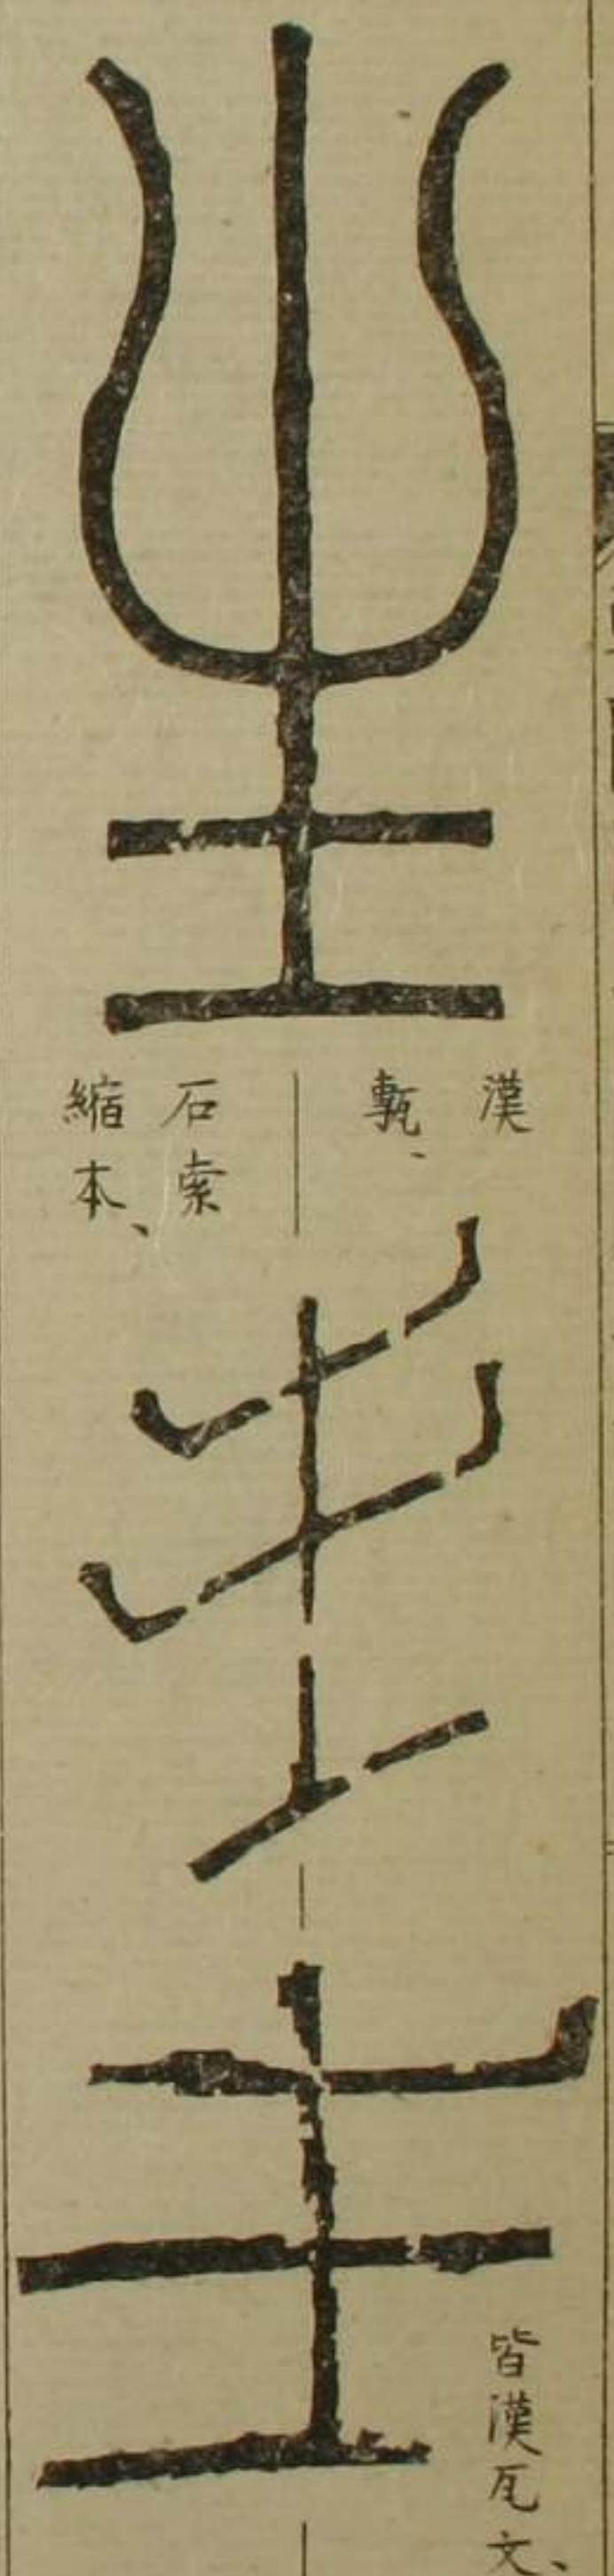 生
漢
甎、
石索
縮本、
生
生
皆漢瓦文、